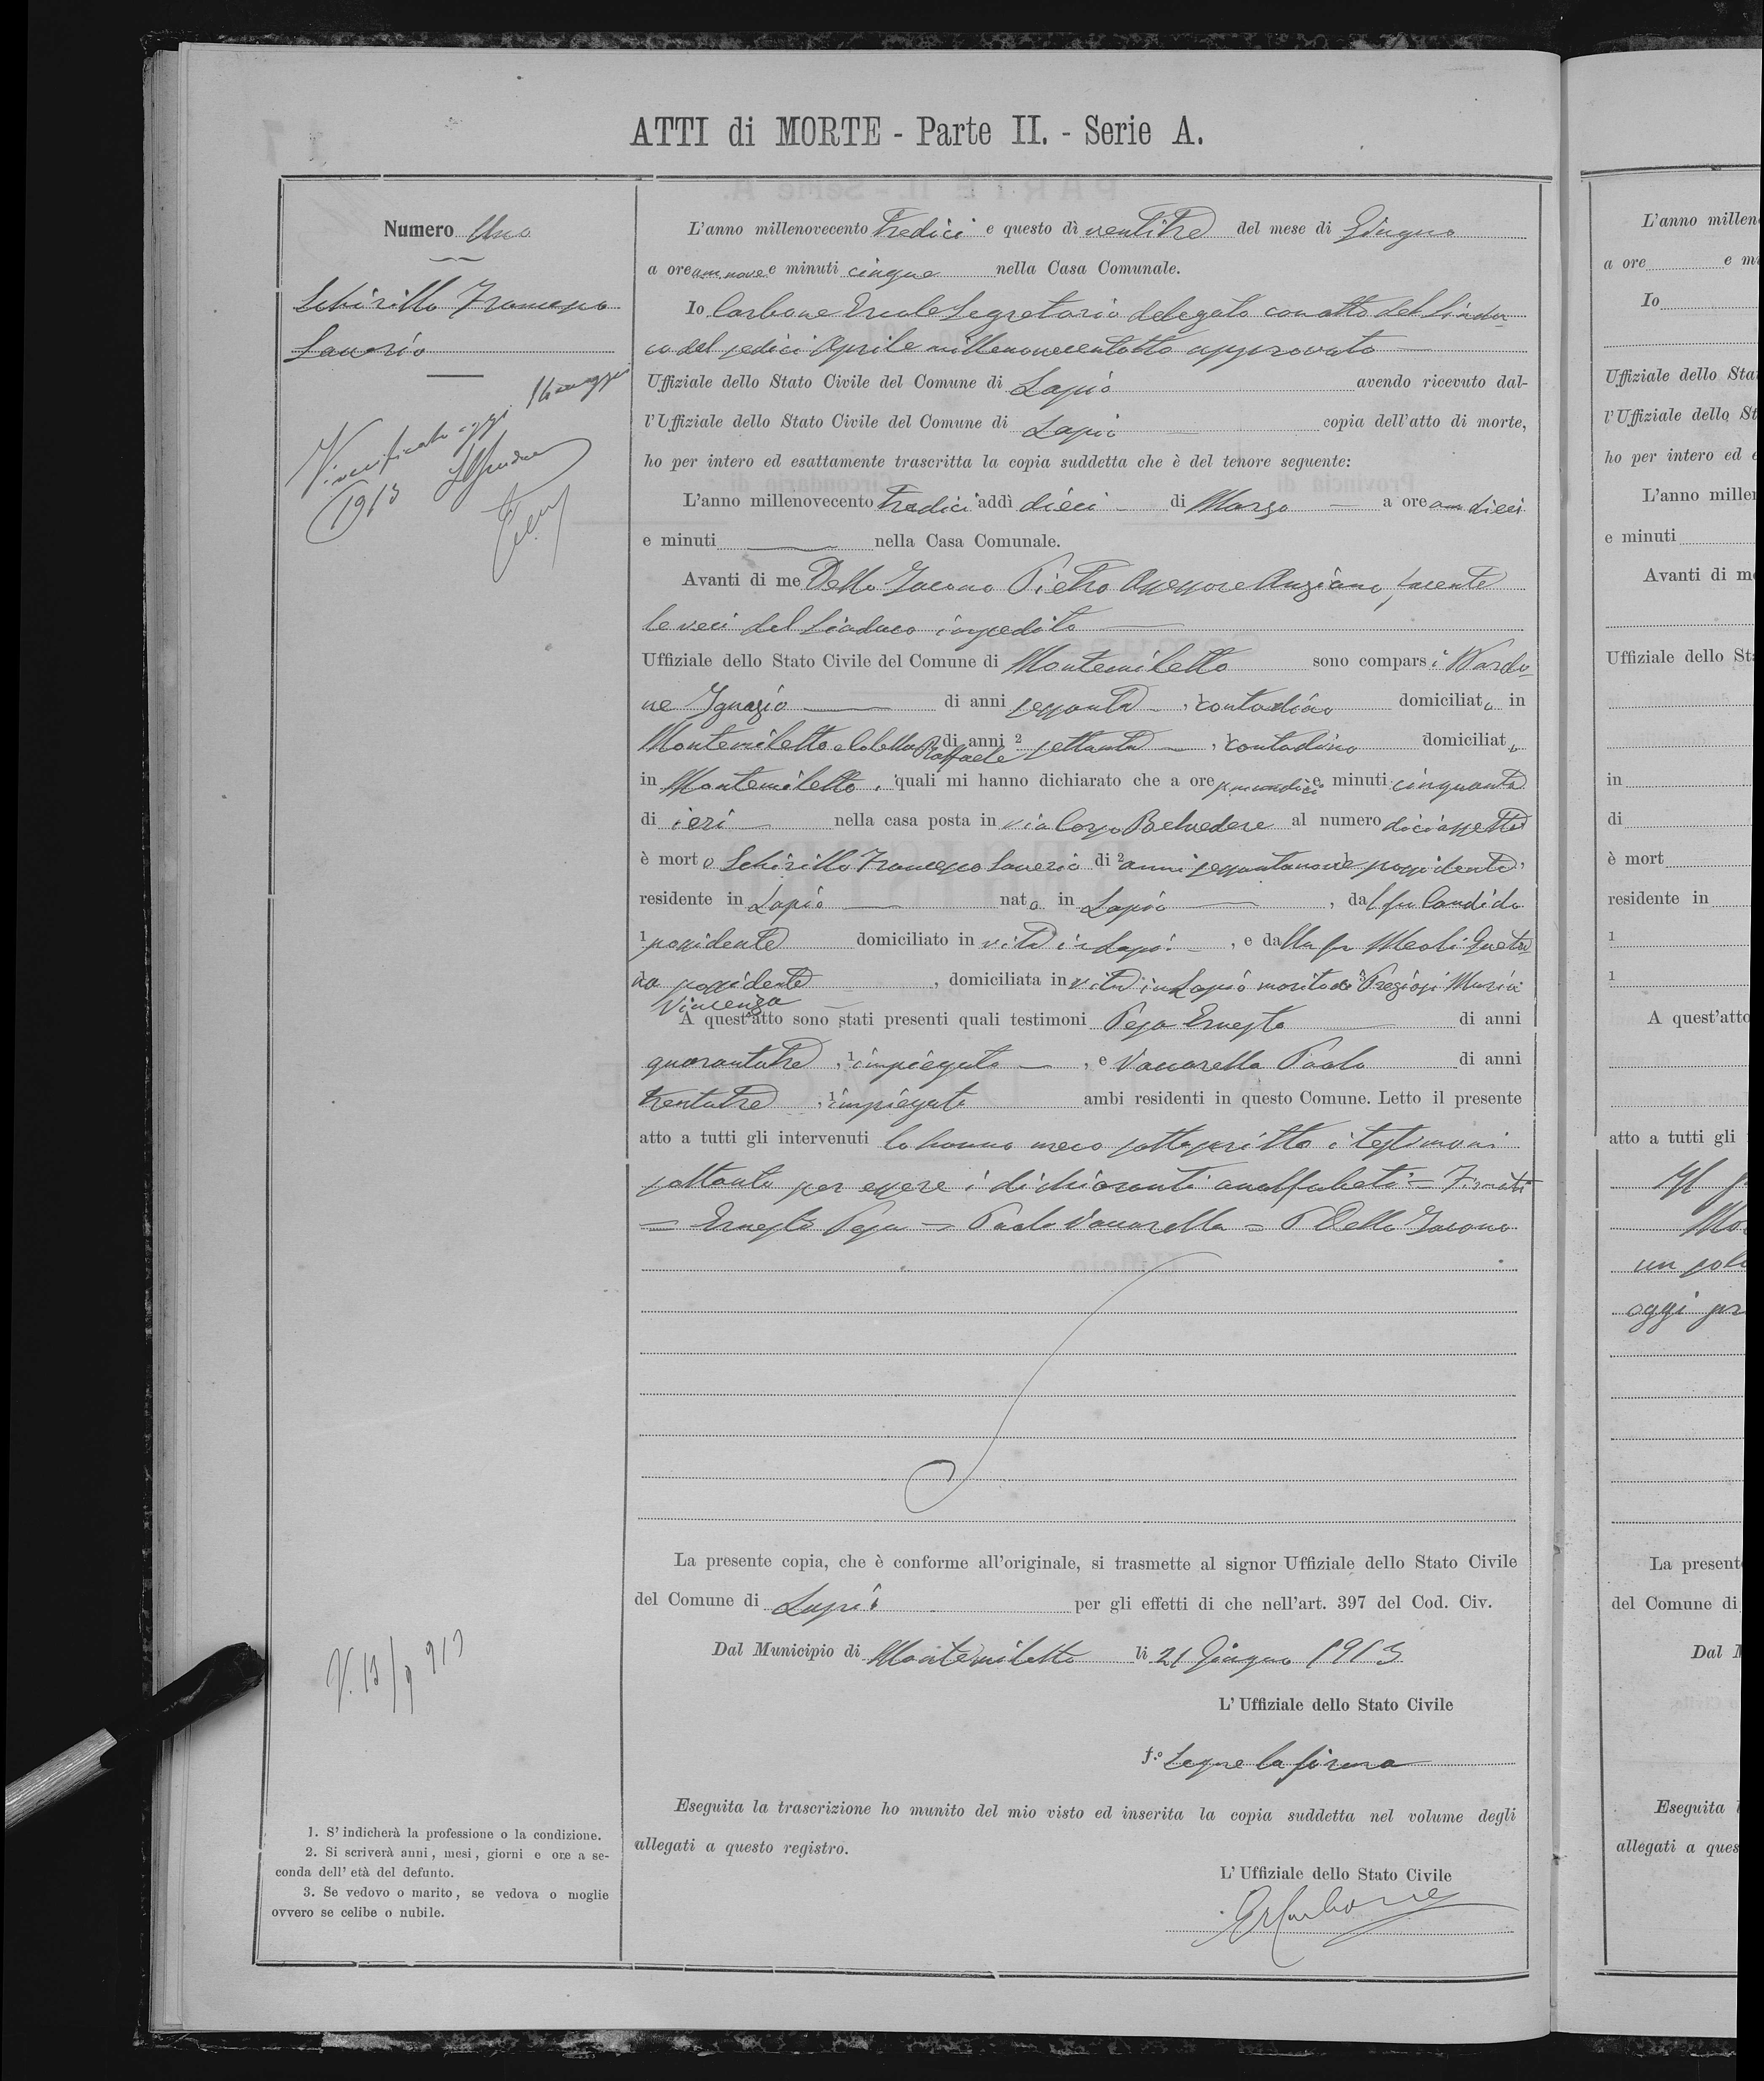 ATTI di MORTE - Parte II. - Serie A.
Numero Uno
Schirillo Francesco
Saverio
Verificato oggi
1913
L'anno millenovecento tredici e questo dì ventitre del mese di Giugno
a ore am. nove e minuti cinque nella Casa Comunale.
Io Carbone Ercole Segretario delegato con atto del Sinda-
co del sedici Aprile millenovecentotto approvato
Uffiziale dello Stato Civile del Comune di Lapio avendo ricevuto dal-
l'Uffiziale dello Stato Civile del Comune di Lapio copia dell'atto di morte,
ho per intero ed esattamente trascritta la copia suddetta che è del tenore seguente:
L'anno millenovecento tredici addì dieci di Marzo a ore am dieci
e minuti nella Casa Comunale.
Avanti di me Dello Iacono Pietro Assessore Anziano, facente
le veci del Sindaco impedito
Uffiziale dello Stato Civile del Comune di Montemiletto sono comparsi Nardo-
ne Ignazio di anni sessanta, contadino domiciliato in
Montemiletto e Colella Raffaele di anni 2 settanta, contadino domiciliato
in Montemiletto, i quali mi hanno dichiarato che a ore pm undici e minuti cinquanta
di ieri nella casa posta in via Corso Belvedere al numero diciassette
è morto Schirillo Francesco Saverio di 2 anni sessantanove possidente,
residente in Lapio nato in Lapio, dal fu Candido
1 possidente domiciliato in vita in Lapio, e dalla fu Meoli Gaeta-
na possidente, domiciliata in vita in Lapio marito di 3 Pregiosi Maria
Vincenza
A quest'atto sono stati presenti quali testimoni Pesa Ernesto di anni
quarantatre, 1 impiegato, e Vaccarella Paolo di anni
trentatre, 1 impiegato ambi residenti in questo Comune. Letto il presente
atto a tutti gli intervenuti lo hanno meco sottoscritto i testimoni
soltanto per essere i dichiaranti analfabeti = Firmati
= Ernesto Pesa = Paolo Vaccarella = P Dello Iacono
La presente copia, che è conforme all'originale, si trasmette al signor Uffiziale dello Stato Civile
del Comune di Lapio per gli effetti di che nell'art. 397 del Cod. Civ.
Dal Municipio di Montemiletto li 21 Giugno 1913
L'Uffiziale dello Stato Civile
f.o Segue la firma
Eseguita la trascrizione ho munito del mio visto ed inserita la copia suddetta nel volume degli
allegati a questo registro.
L'Uffiziale dello Stato Civile
ErCarbone
V. 13/9 913
1. S'indicherà la professione o la condizione.
2. Si scriverà anni, mesi, giorni e ore a se-
conda dell'età del defunto.
3. Se vedovo o marito, se vedova o moglie
ovvero se celibe o nubile.
L'anno millen
a ore e mi
Io
Uffiziale dello Sta
l'Uffiziale dello St
ho per intero ed e
L'anno mille
e minuti
Avanti di m
Uffiziale dello St
in
di
è mort
residente in
1
1
A quest'atto
atto a tutti gli
un sol
oggi pr
La present
del Comune di
Dal M
Eseguita l
allegati a ques